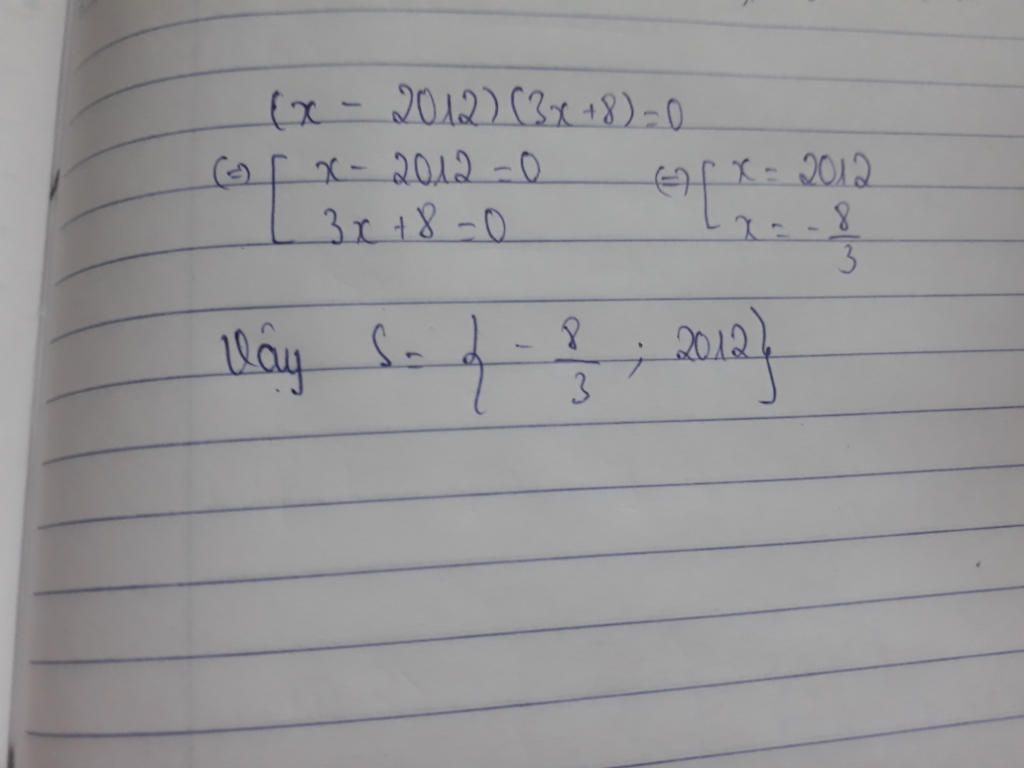 (x - 2012)(3x+8)=0
(=) [ x - 2012 = 0 (=) [ x = 2012
3x + 8 = 0 x = - 8/3
Vậy S = { - 8/3 ; 2012}